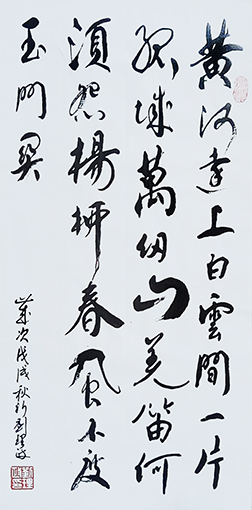 黄河遠上白雲間一片
孤城萬仞山羌笛何
須怨楊柳春風不度
玉門関
歲次戊戌秋